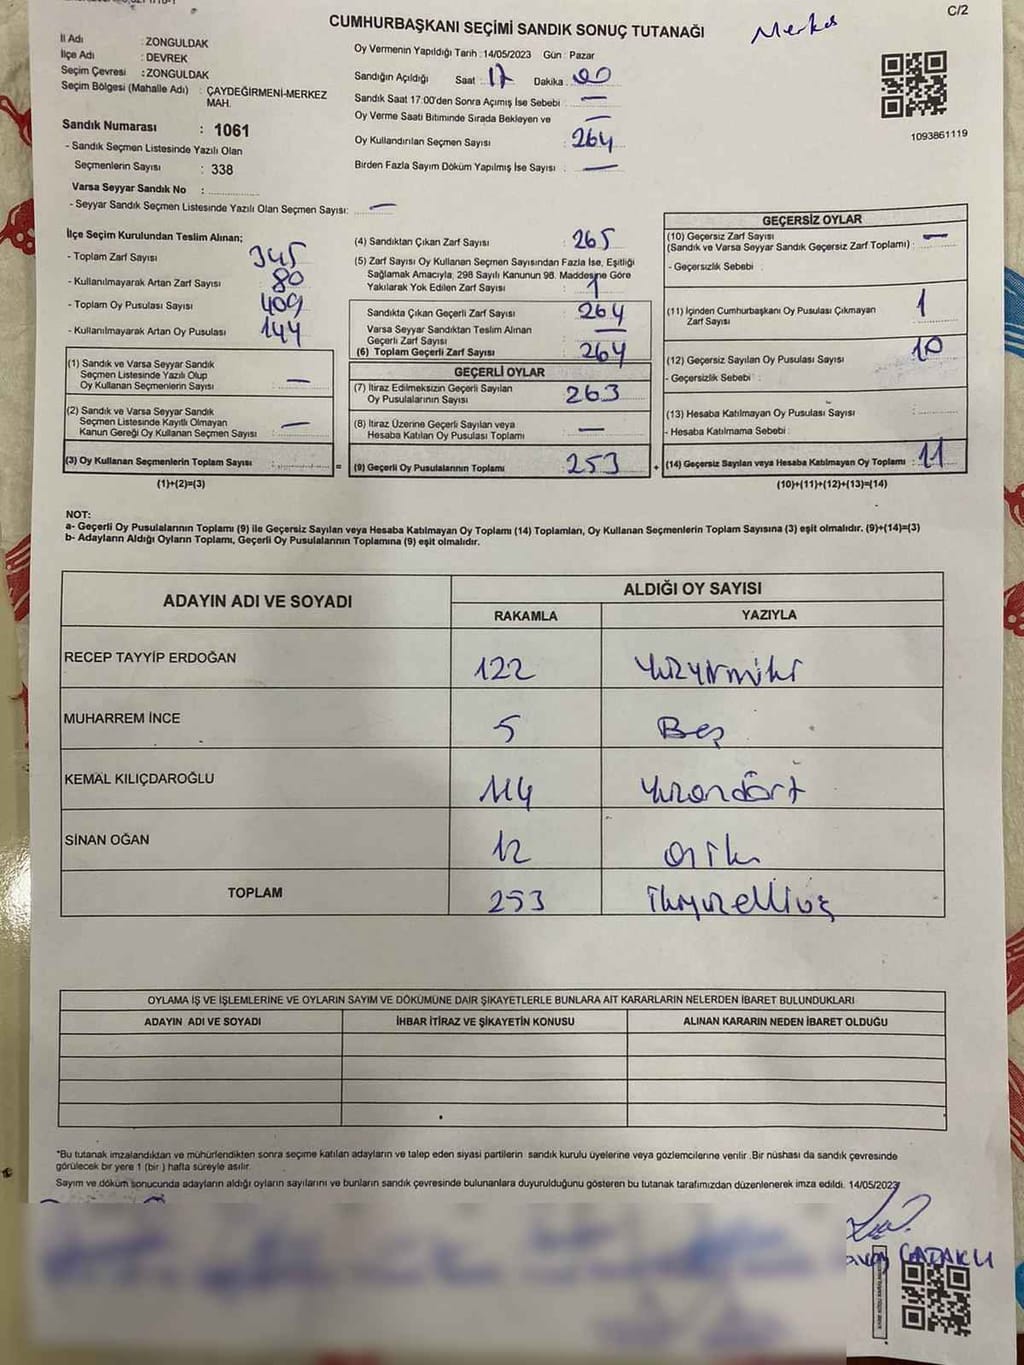 C/2
CUMHURBAŞKANI SEÇİMİ SANDIK SONUÇ TUTANAĞI
İl Adı : ZONGULDAK
İlçe Adı : DEVREK
Seçim Çevresi : ZONGULDAK
Seçim Bölgesi (Mahalle Adı) : ÇAYDEĞİRMENİ-MERKEZ MAH.
Sandık Numarası : 1061
- Sandık Seçmen Listesinde Yazılı Olan
Seçmenlerin Sayısı : 338
Varsa Seyyar Sandık No :
- Seyyar Sandık Seçmen Listesinde Yazılı Olan Seçmen Sayısı: —
Oy Vermenin Yapıldığı Tarih : 14/05/2023 Gün : Pazar
Sandığın Açıldığı Saat : 17 Dakika : 00
Sandık Saat 17:00'den Sonra Açımış İse Sebebi : —
Oy Verme Saati Bitiminde Sırada Bekleyen ve —
Oy Kullandırılan Seçmen Sayısı : 264
Birden Fazla Sayım Döküm Yapılmış İse Sayısı : —
1093861119
İlçe Seçim Kurulundan Teslim Alınan;
- Toplam Zarf Sayısı 345
- Kullanılmayarak Artan Zarf Sayısı : 80
- Toplam Oy Pusulası Sayısı 409
- Kullanılmayarak Artan Oy Pusulası 144
(1) Sandık ve Varsa Seyyar Sandık
Seçmen Listesinde Yazılı Olup
Oy Kullanan Seçmenlerin Sayısı : —
(2) Sandık ve Varsa Seyyar Sandık
Seçmen Listesinde Kayıtlı Olmayan
Kanun Gereği Oy Kullanan Seçmen Sayısı : —
(3) Oy Kullanan Seçmenlerin Toplam Sayısı : =
(1)+(2)=(3)
(4) Sandıktan Çıkan Zarf Sayısı : 265
(5) Zarf Sayısı Oy Kullanan Seçmen Sayısından Fazla İse, Eşitliği
Sağlamak Amacıyla, 298 Sayılı Kanunun 98. Maddesine Göre
Yakılarak Yok Edilen Zarf Sayısı : 1
Sandıkta Çıkan Geçerli Zarf Sayısı : 264
Varsa Seyyar Sandıktan Teslim Alınan
Geçerli Zarf Sayısı —
(6) Toplam Geçerli Zarf Sayısı : 264
GEÇERLİ OYLAR
(7) İtiraz Edilmeksizin Geçerli Sayılan
Oy Pusulalarının Sayısı : 263
(8) İtiraz Üzerine Geçerli Sayılan veya
Hesaba Katılan Oy Pusulası Toplamı : —
(9) Geçerli Oy Pusulalarının Toplamı : 253 +
GEÇERSİZ OYLAR
(10) Geçersiz Zarf Sayısı —
(Sandık ve Varsa Seyyar Sandık Geçersiz Zarf Toplamı) :
- Geçersizlik Sebebi :
(11) İçinden Cumhurbaşkanı Oy Pusulası Çıkmayan 1
Zarf Sayısı
(12) Geçersiz Sayılan Oy Pusulası Sayısı : 10
- Geçersizlik Sebebi :
(13) Hesaba Katılmayan Oy Pusulası Sayısı :
- Hesaba Katılmama Sebebi :
(14) Geçersiz Sayılan veya Hesaba Katılmayan Oy Toplamı : 11
(10)+(11)+(12)+(13)=(14)
NOT:
a- Geçerli Oy Pusulalarının Toplamı (9) ile Geçersiz Sayılan veya Hesaba Katılmayan Oy Toplamı (14) Toplamları, Oy Kullanan Seçmenlerin Toplam Sayısına (3) eşit olmalıdır. (9)+(14)=(3)
b- Adayların Aldığı Oyların Toplamı, Geçerli Oy Pusulalarının Toplamına (9) eşit olmalıdır.
ADAYIN ADI VE SOYADI
ALDIĞI OY SAYISI
RAKAMLA YAZIYLA
RECEP TAYYİP ERDOĞAN 122 Yüzyirmiiki
MUHARREM İNCE 5 Beş
KEMAL KILIÇDAROĞLU 114 Yüzondört
SİNAN OĞAN 12 oniki
TOPLAM 253 ikiyüzelliüç
OYLAMA İŞ VE İŞLEMLERİNE VE OYLARIN SAYIM VE DÖKÜMÜNE DAİR ŞİKAYETLERLE BUNLARA AİT KARARLARIN NELERDEN İBARET BULUNDUKLARI
ADAYIN ADI VE SOYADI İHBAR İTİRAZ VE ŞİKAYETİN KONUSU ALINAN KARARIN NEDEN İBARET OLDUĞU
*Bu tutanak imzalandıktan ve mühürlendikten sonra seçime katılan adayların ve talep eden siyasi partilerin sandık kurulu üyelerine veya gözlemcilerine verilir. Bir nüshası da sandık çevresinde
görülecek bir yere 1 (bir ) hafta süreyle asılır.
Sayım ve döküm sonucunda adayların aldığı oyların sayılarını ve bunların sandık çevresinde bulunanlara duyurulduğunu gösteren bu tutanak tarafımızdan düzenlenerek imza edildi. 14/05/2023